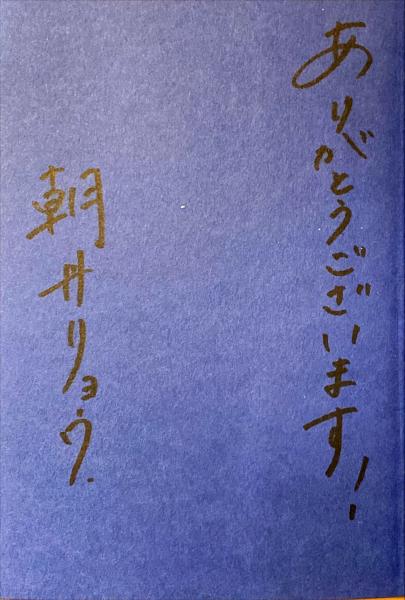 ありがとうございます!
朝井リョウ.